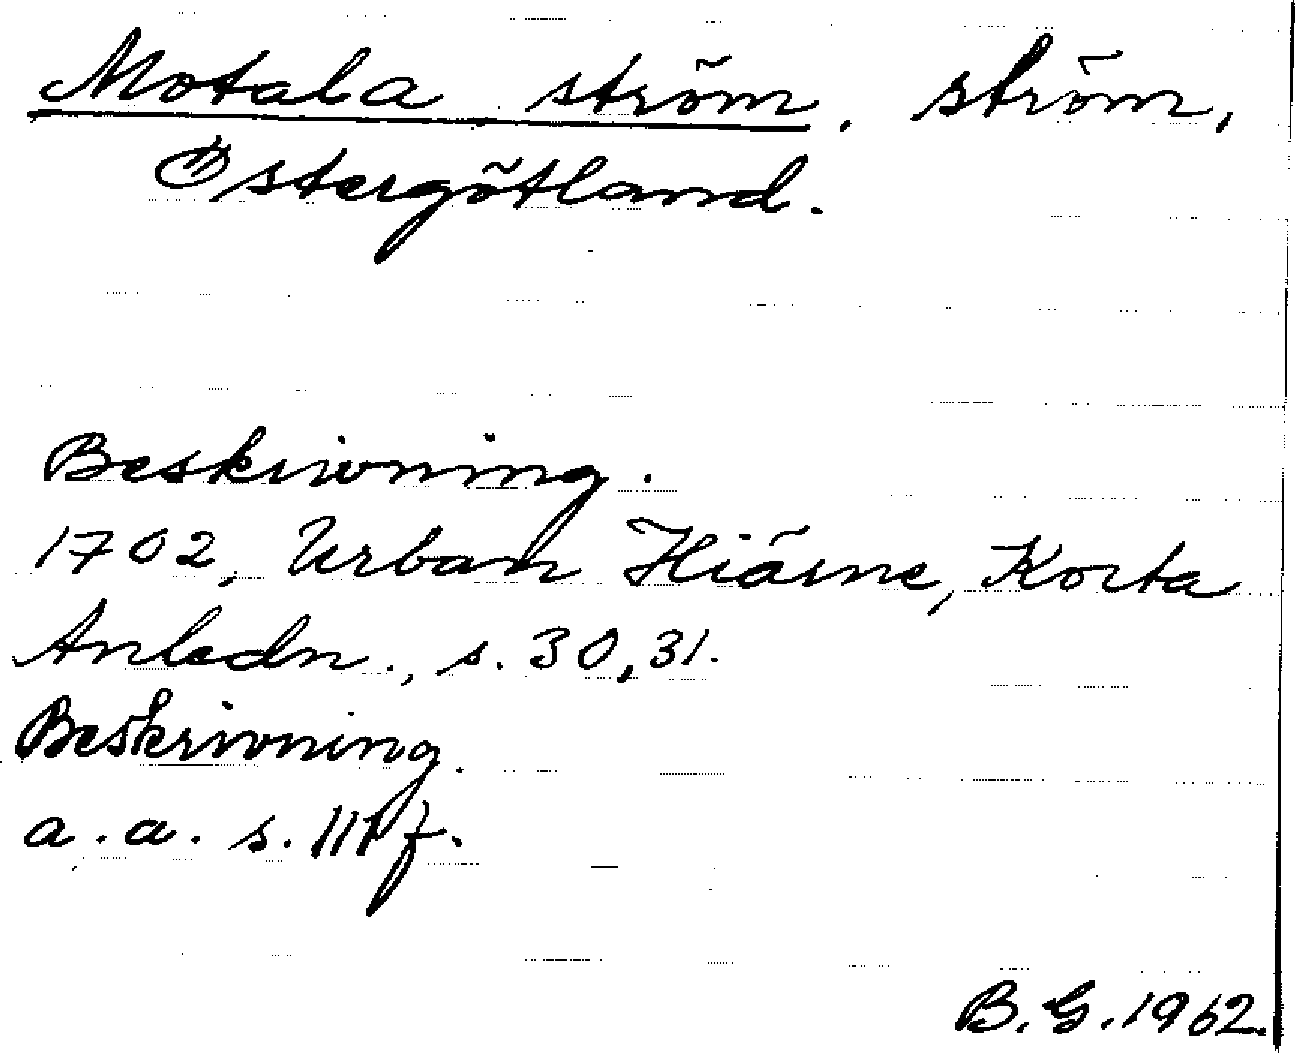 Motala ström, ström,
Östergötland.
Beskrivning.
1702, Urban Hiärne, Korta
Anledn., s. 30, 31.
Beskrivning.
a.a. s. 111 f.
B.G. 1962.